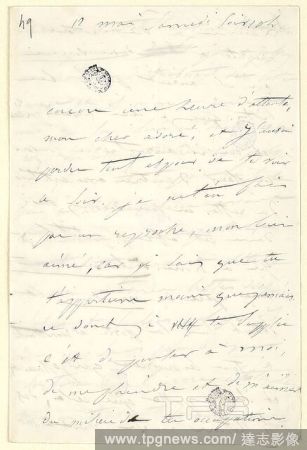 49
12 mai samedi soir 10h
encore une heure d'attente,
mon cher adoré, et il faudra
perdre tout espoir de te voir
ce soir. Je ne t'en fais
pas un reproche, mon bien
aimé, car je sais que tu
t'appartiens moins que jamais
ce dont je te supplie
c'est de penser à moi,
de me plaindre et de m'aimer
du milieu de tes occupations
www.tpgnews.com/ 達志影像